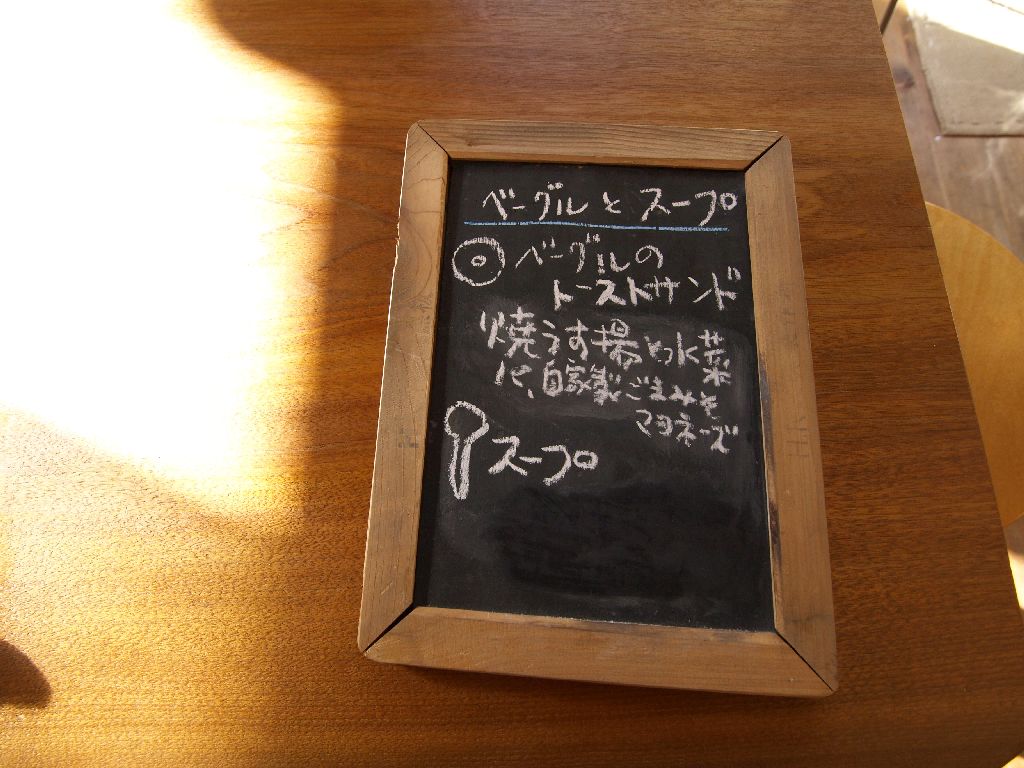 ベーグルと スープ
ベーグルの
トーストサンド
焼うす揚と水菜
に、自家製ごまみそ
マヨネーズ
スープ